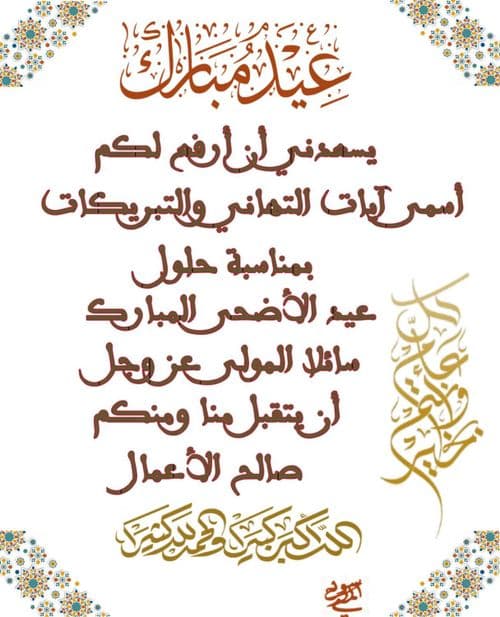 عِيْدٌ مُبَارَكٌ
يسعدني أن أرفع لكم
أسمى آيات التهاني والتبريكات
بمناسبة حلول
عيد الأضحى المبارك
سائلا المولى عز وجل
أن يتقبل منا ومنكم
صالح الأعمال
كل عام وأنتم بخير
الله أكبر كبيرا والحمد لله كثيرا